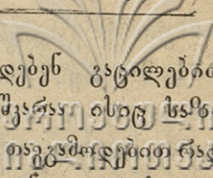 დებენ გაცილებით
შკარაა ისიც საზ
თავგამოდებით რა